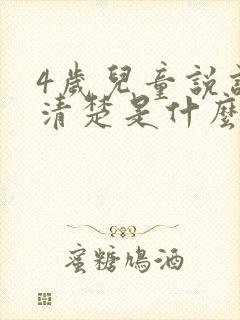 4歲兒童說話
清楚是什麼
蜜糖鳩酒